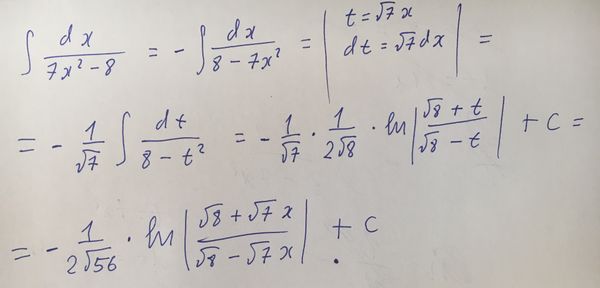 ∫ dx/(7x² - 8) = - ∫ dx/(8 - 7x²) = | t = √7 x dt = √7 dx | =
= - 1/√7 ∫ dt/(8 - t²) = - 1/√7 · 1/(2√8) · ln |(√8 + t)/(√8 - t)| + C =
= - 1/(2√56) · ln |(√8 + √7 x)/(√8 - √7 x)| + C.